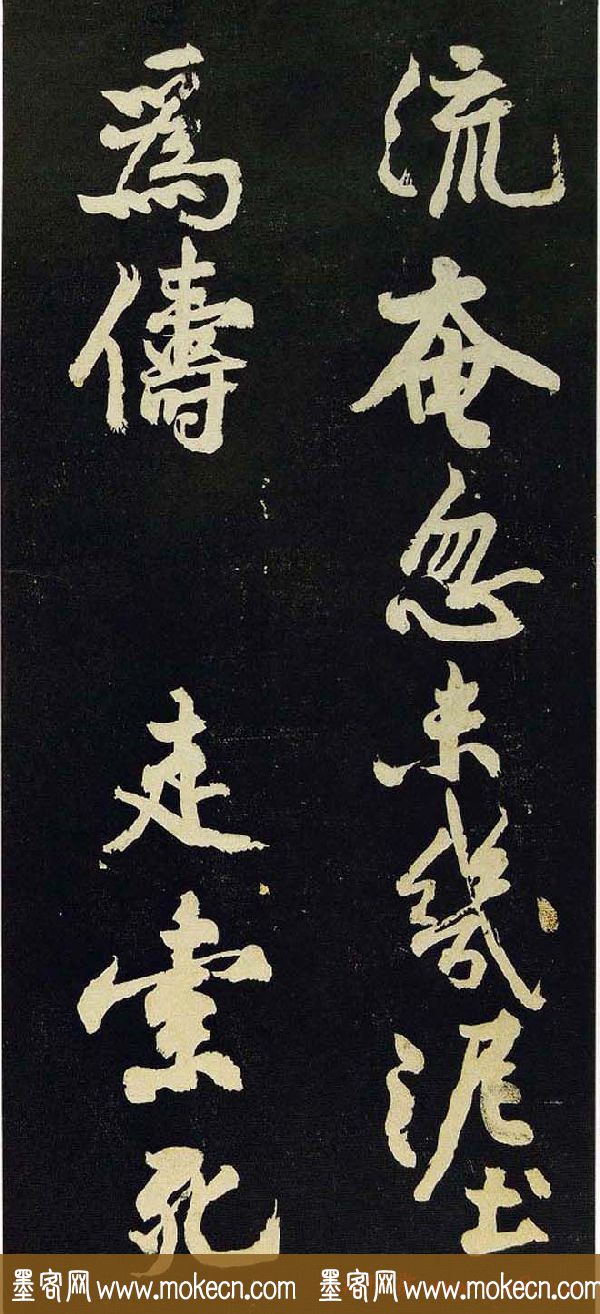 流奄忽未幾泥土
爲儔 走索死
墨客网 www.mokecn.com 墨客网 www.mokecn.com